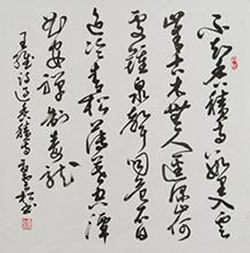 不知香積寺數里入雲
峯古木無人逕深山何
處鐘泉聲咽危石日
色冷青松薄暮空潭
曲安禪制毒龍
王維詩過香積寺